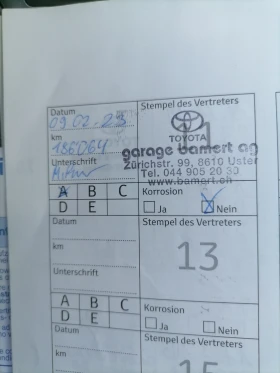 Datum
09 02 - 23
Stempel des Vertreters
TOYOTA
km
186064
garage bamert ag
Zürichstr. 99, 8610 Uster
Tel. 044 905 20 30
www.bamert.ch
Unterschrift
A B C
D E
Korrosion
Ja Nein
Datum
Stempel des Vertreters
km
13
Unterschrift
A B C
D E
Korrosion
Ja Nein
Datum
Stempel des Vertreters
km
15